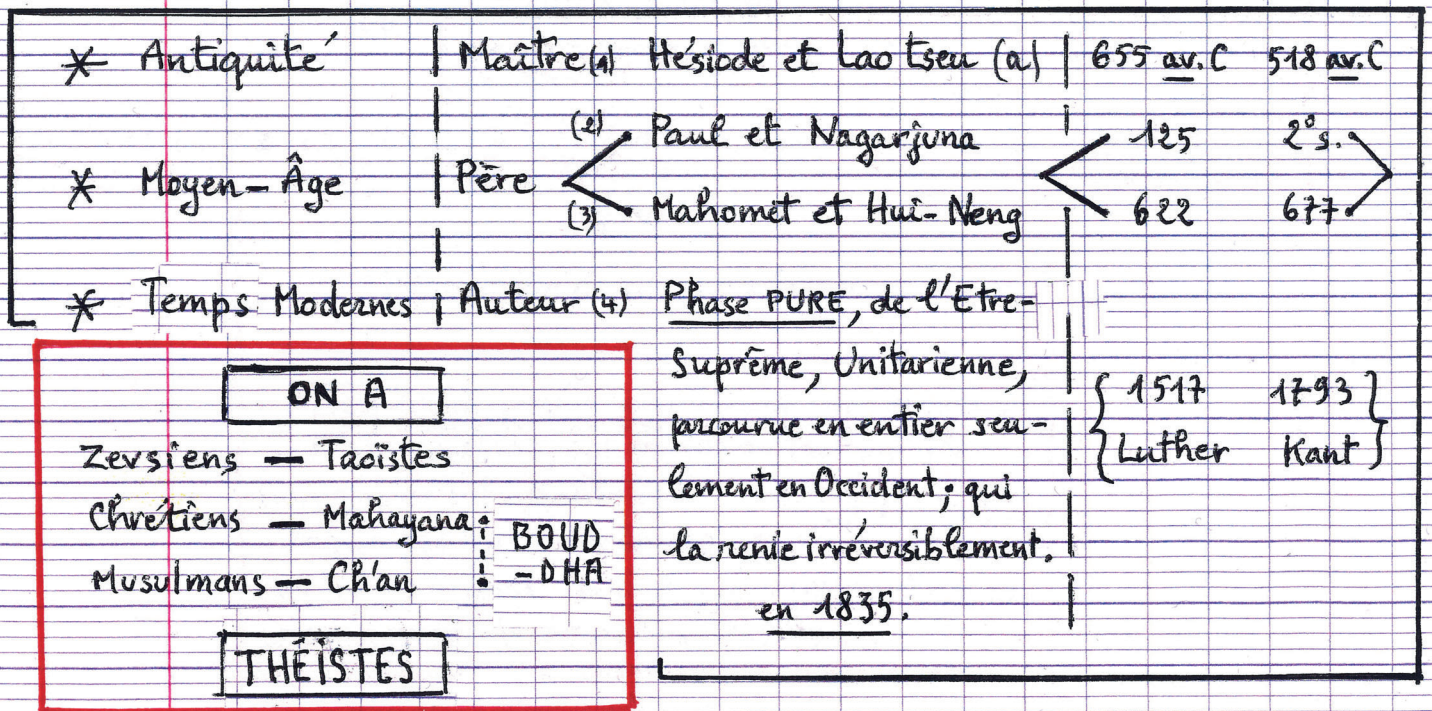 * Antiquité | Maître (1) Hésiode et Lao tseu (a) | 655 av.C 518 av.C
(2) Paul et Nagarjuna 125 2°s.
* Moyen-Âge | Père
(3) Mahomet et Hui-Neng 622 677
* Temps Modernes | Auteur (4) Phase PURE, de l'Etre-
Suprême, Unitarienne,
parcourue en entier seu-
lement en Occident; qui
la renie irréversiblement.
en 1835.
{ 1517 1793 }
{ Luther Kant }
ON A
Zevsiens — Taoïstes
Chrétiens — Mahayana
Musulmans — Ch'an
BOUD
-DHA
THÉÏSTES